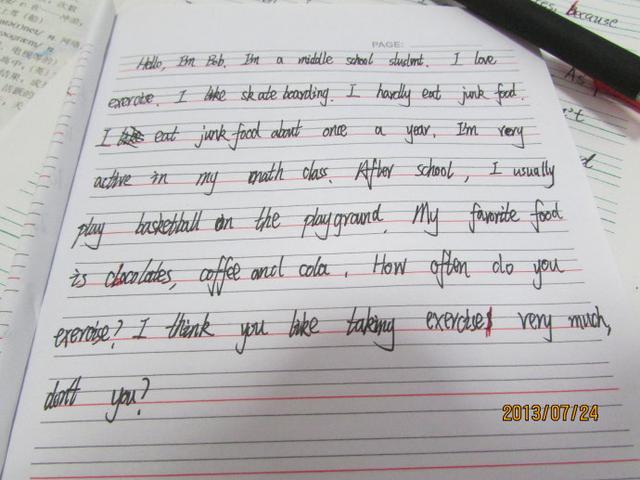 PAGE:
because
Hello, I'm Bob. I'm a middle school student. I love
exercise. I like skateboarding. I hardly eat junk food.
I eat junk food about once a year. I'm very
active in my math class. After school, I usually
play basketball on the playground. My favorite food
is chocolates, coffee and cola. How often do you
exercise? I think you like taking exercise very much,
don't you?
2013/07/24